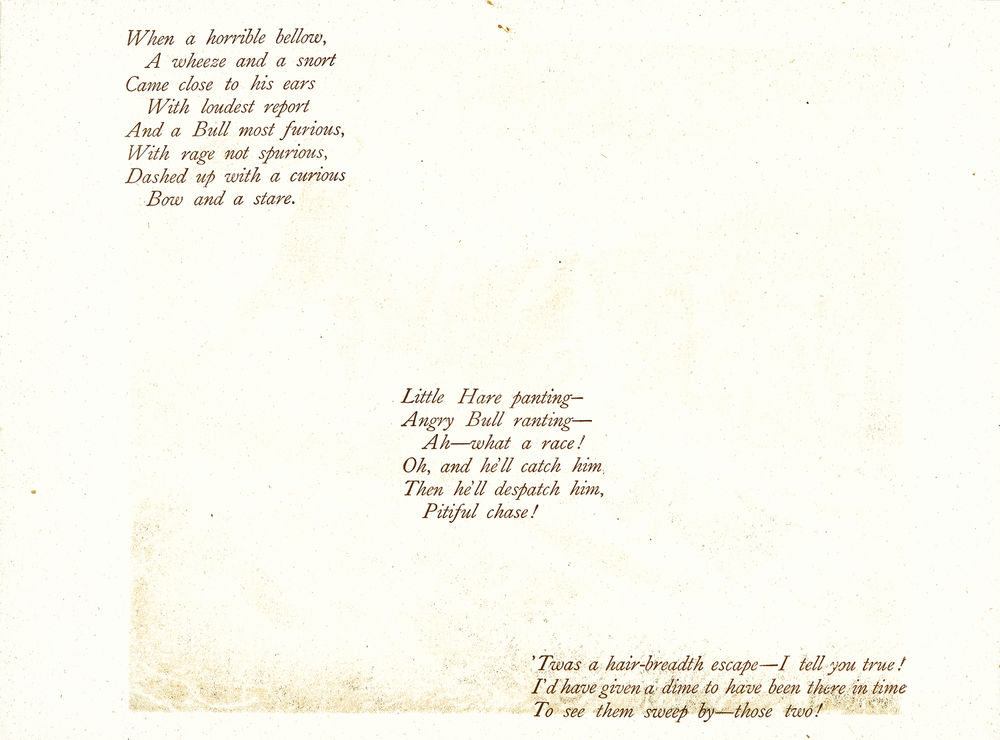 When a horrible bellow,
A wheeze and a snort
Came close to his ears
With loudest report
And a Bull most furious,
With rage not spurious,
Dashed up with a curious
Bow and a stare.
Little Hare panting—
Angry Bull ranting—
Ah—what a race!
Oh, and he'll catch him,
Then he'll despatch him,
Pitiful chase!
'Twas a hair-breadth escape—I tell you true!
I'd have given a dime to have been there in time
To see them sweep by—those two!